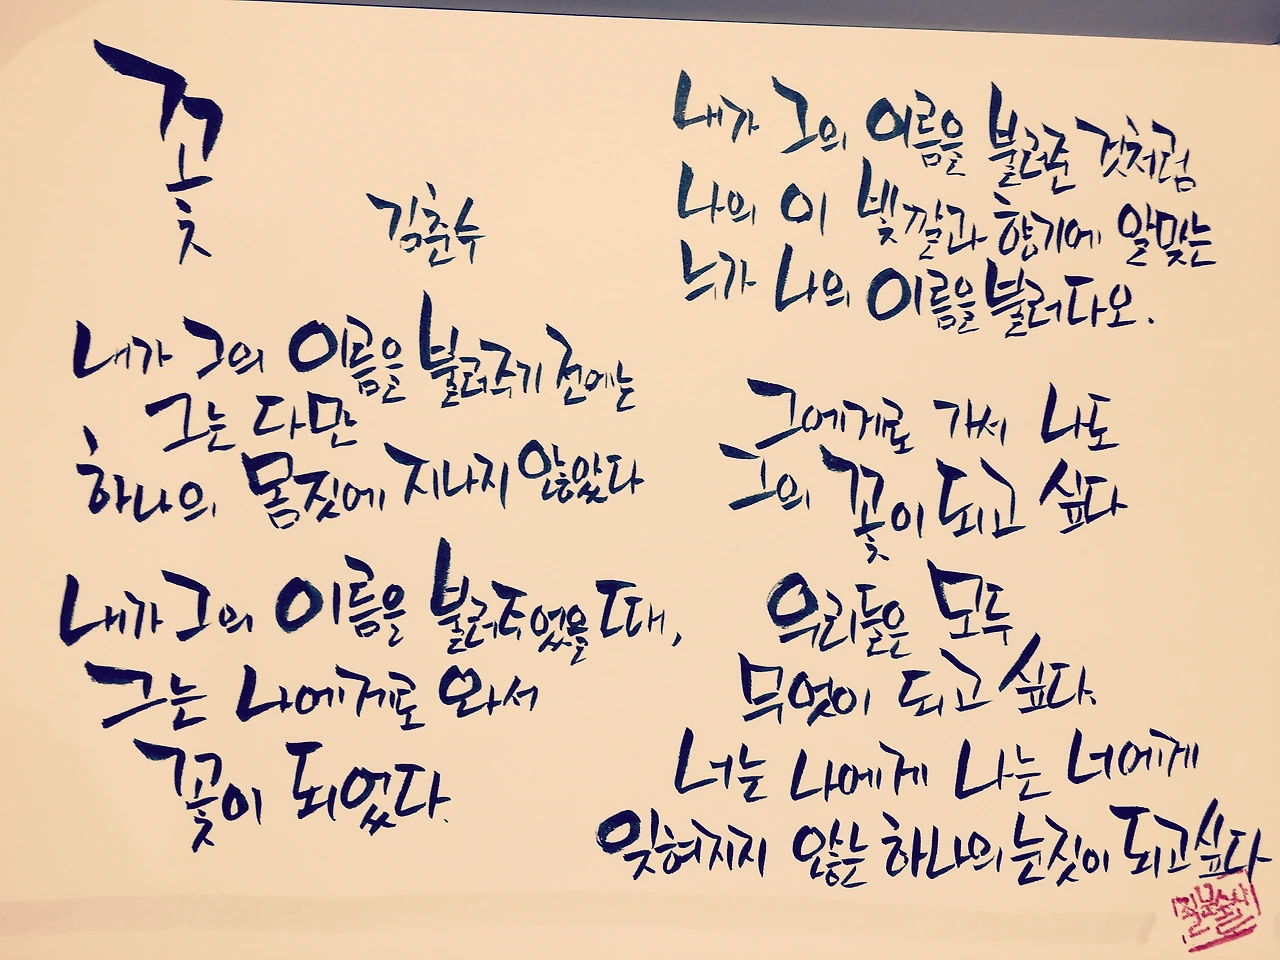 꽃
김춘수
내가 그의 이름을 불러주기 전에는
그는 다만
하나의 몸짓에 지나지 않았다
내가 그의 이름을 불러주었을 때,
그는 나에게로 와서
꽃이 되었다.
내가 그의 이름을 불러준 것처럼
나의 이 빛깔과 향기에 알맞는
느가 나의 이름을 불러다오.
그에게로 가서 나도
그의 꽃이 되고 싶다
우리들은 모두
무엇이 되고 싶다.
너는 나에게 나는 너에게
잊혀지지 않는 하나의 눈짓이 되고 싶다